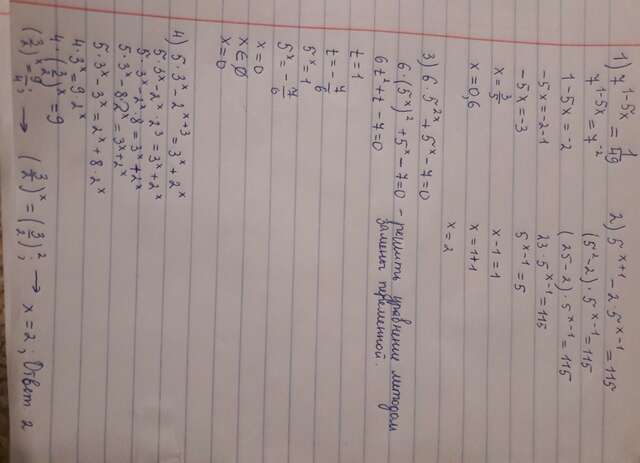 1) 7^(1-5x) = 1/49
7^(1-5x) = 7^(-2)
1-5x = -2
-5x = -2-1
-5x = -3
x = 3/5
x = 0,6
2) 5^(x+1) - 2·5^(x-1) = 115
(5^2-2)·5^(x-1) = 115
(25-2)·5^(x-1) = 115
23·5^(x-1) = 115
5^(x-1) = 5
x-1 = 1
x = 1+1
x = 2
3) 6·5^(2x) + 5^x - 7 = 0
6·(5^x)^2 + 5^x - 7 = 0 - решить уравнение методом
замены переменной.
6t^2 + t - 7 = 0
t = 1
t = -7/6
5^x = 1
5^x = -7/6
x = 0
x ∈ ∅
x = 0
4) 5·3^x - 2^(x+3) = 3^x + 2^x
5·3^x - 2^x·2^3 = 3^x + 2^x
5·3^x - 2^x·8 = 3^x + 2^x
5·3^x - 8·2^x = 3^x + 2^x
5·3^x - 3^x = 2^x + 8·2^x
4·3^x = 9·2^x
4·(3/2)^x = 9
(3/2)^x = 9/4; → (3/2)^x = (3/2)^2; → x = 2; Ответ 2